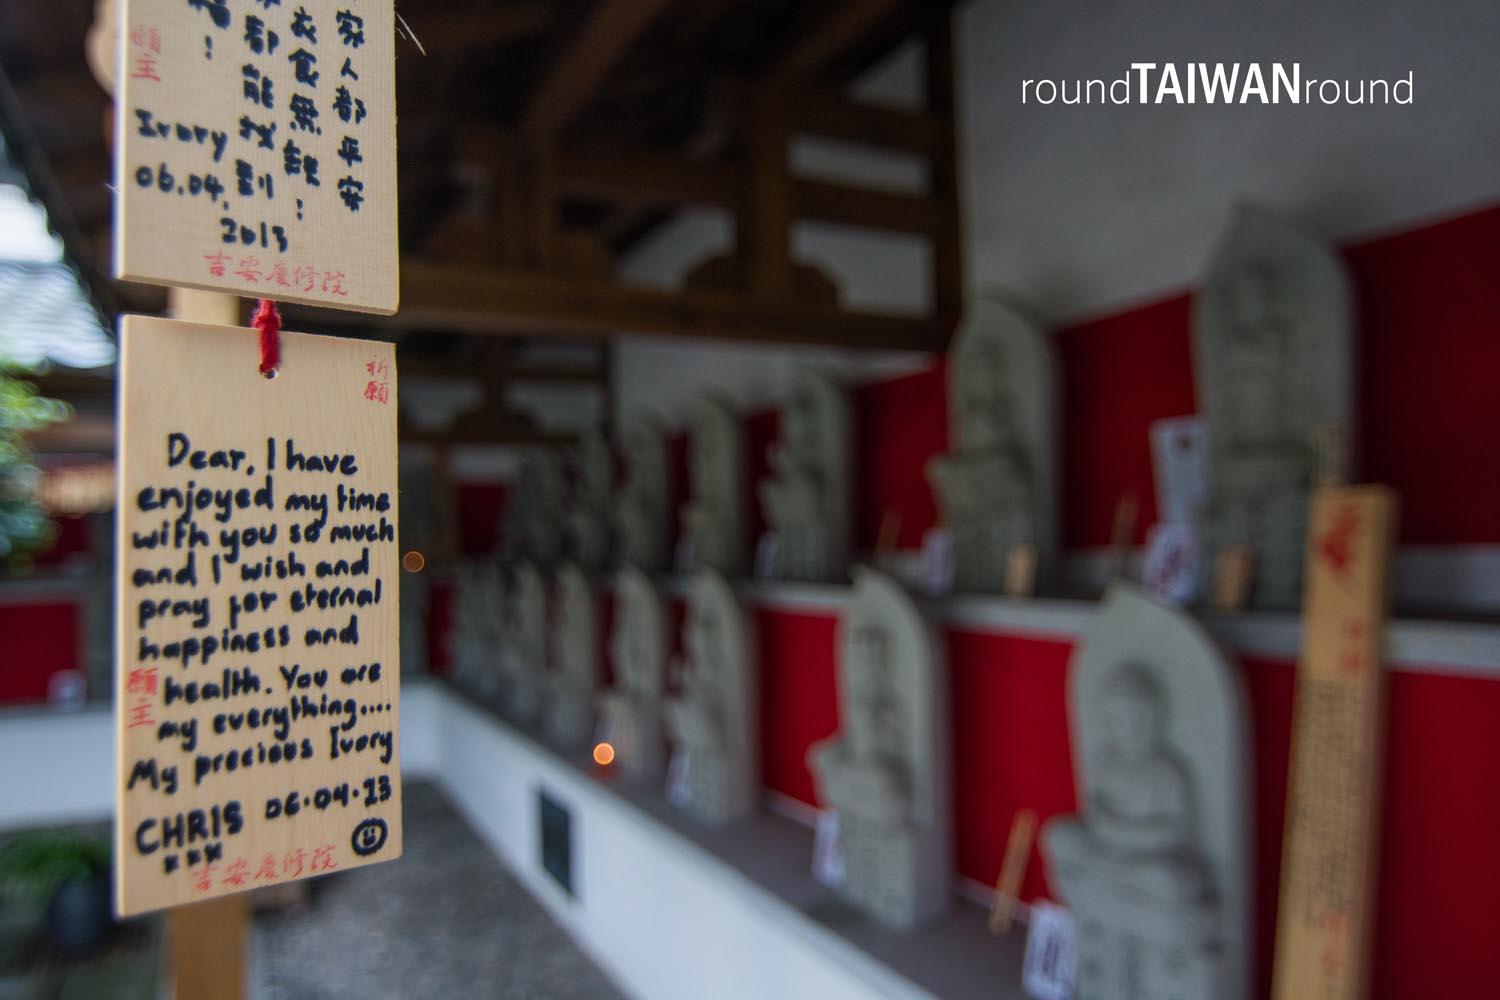 roundTAIWANround
家人都平安
衣食無缺：
都能找到
福：
願主
Ivory
06.04.
2013
吉安慶修院
祈願
Dear, I have
enjoyed my time
with you so much
and I wish and
pray for eternal
happiness and
health. You are
my everything....
My precious Ivory
CHRIS 06.04.13
xxx
願主
吉安慶修院